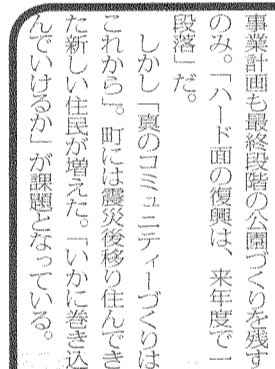 事業計画も最終段階の公園づくりを残す
のみ。「ハード面の復興は、来年度で一
段落」だ。
しかし「真のコミュニティーづくりは
これから」。町には震災後移り住んでき
た新しい住民が増えた。「いかに巻き込
んでいけるか」が課題となっている。